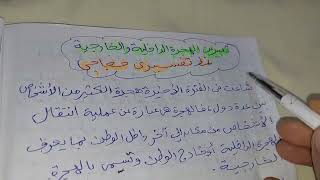 تعبير عن الهجرة الداخلية والخارجية
نمط تفسيري حجاجي
شاعت في الفترة الأخيرة هجرة الكثير من الأشخاص
من عدة دول فالهجرة هي عبارة عن عملية انتقال
الأشخاص من مكان إلى آخر داخل الوطن بما يعرف
الهجرة الداخلية أو خارج الوطن وتسمى بالهجرة
الخارجية.